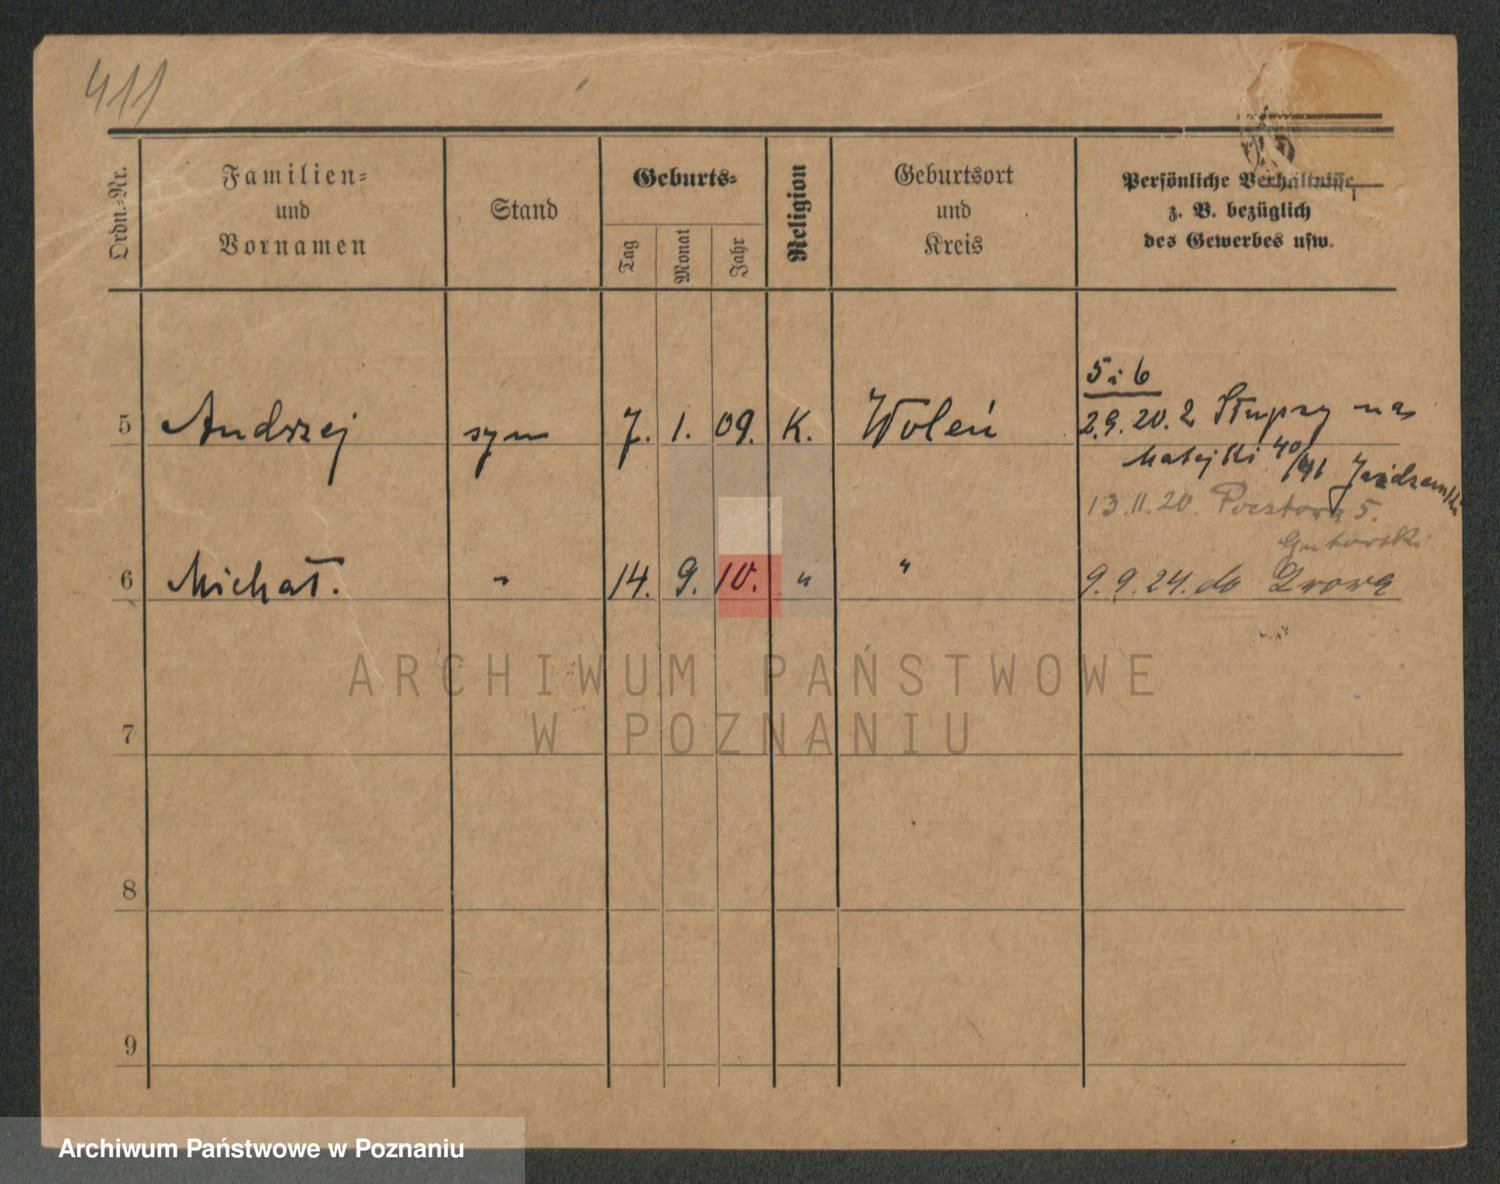 411
Ordn.-Nr.
Familien-
und
Vornamen
Stand
Geburts-
Tag
Monat
Jahr
Religion
Geburtsort
und
Kreis
Persönliche Verhältnisse,
z. B. bezüglich
des Gewerbes usw.
5 i 6
5 Andrzej syn 7. 1. 09. K. Woleń 2.9.20. z Słupszy na
Matejki 40/41
13.11.20. Pocztowa 5.
6 Michał. " 14. 9. 10. " " 9.9.24. do
7
8
9
ARCHIWUM PAŃSTWOWE
W POZNANIU
Archiwum Państwowe w Poznaniu